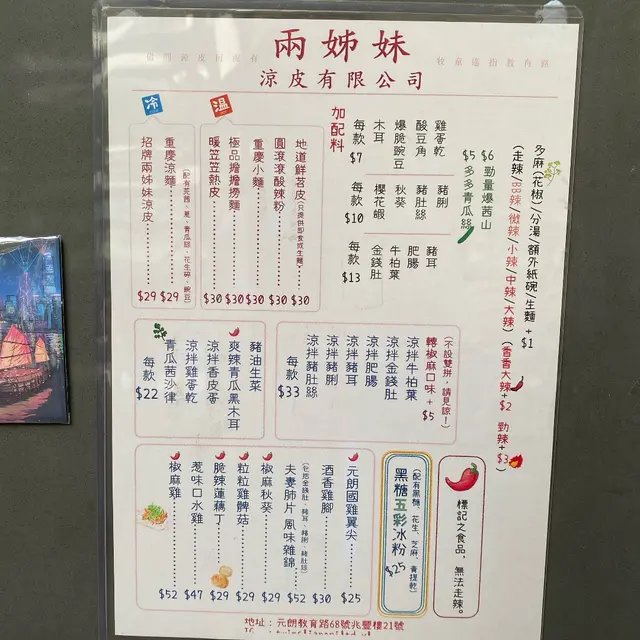 兩姊妹
涼皮有限公司
多麻(花椒)/分湯/額外紙碗/生麵 + $1
(走辣/BB辣/微辣/小辣/中辣/大辣)(香香大辣+$2 勁辣+$3)
$6 勁量爆茜山
$5 多多青瓜絲
加配料
雞蛋乾
酸豆角
爆脆豌豆
木耳
每款$7
豬脷
豬肚絲
秋葵
櫻花蝦
每款$10
豬耳
肥腸
牛柏葉
金錢肚
每款$13
溫
地道鮮苕皮(只提供即食或生麵)$30
圓滾滾酸辣粉$30
重慶小麵$30
極品擔擔撈麵$30
暖笠笠熱皮$30
冷
重慶涼麵$29
招牌兩姊妹涼皮$29
(不設雙拼,請見諒!)
轉椒麻口味+$5
涼拌牛柏葉
涼拌金錢肚
涼拌肥腸
涼拌豬耳
涼拌豬脷
涼拌豬肚絲
每款$33
豬油生菜
爽辣青瓜黑木耳
涼拌香皮蛋
涼拌雞蛋乾
青瓜茜沙律
每款$22
標記之食品,無法走辣。
(配有黑糖、花生、芝麻、青提乾)
黑糖五彩冰粉$25
元朗國雞翼尖$25
酒香雞腳$30
夫妻肺片 風味雜錦$52
(包括金錢肚、豬耳、豬脷、豬肚絲)
椒麻秋葵$29
粒粒雞髀菇$29
脆辣蓮藕丁$29
惹味口水雞$47
椒麻雞$52
地址:元朗教育路68號兆豐樓21號